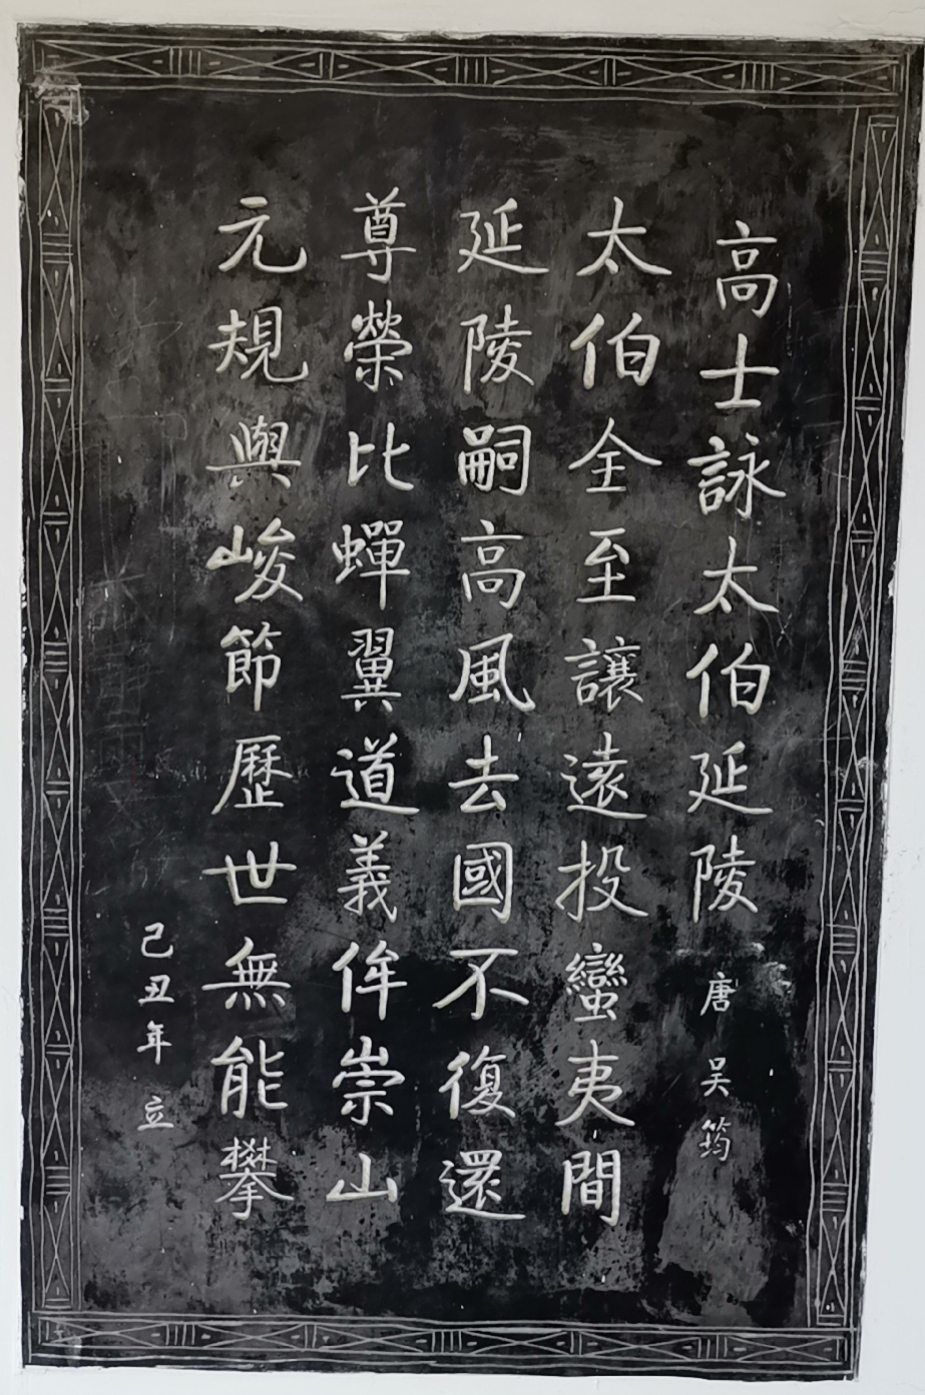 高士詠太伯延陵 唐 吴筠
太伯全至讓遠投蠻夷間
延陵嗣高風去國不復還
尊榮比蟬翼道義侔崇山
元規與峻節歷世無能攀
己丑年 立